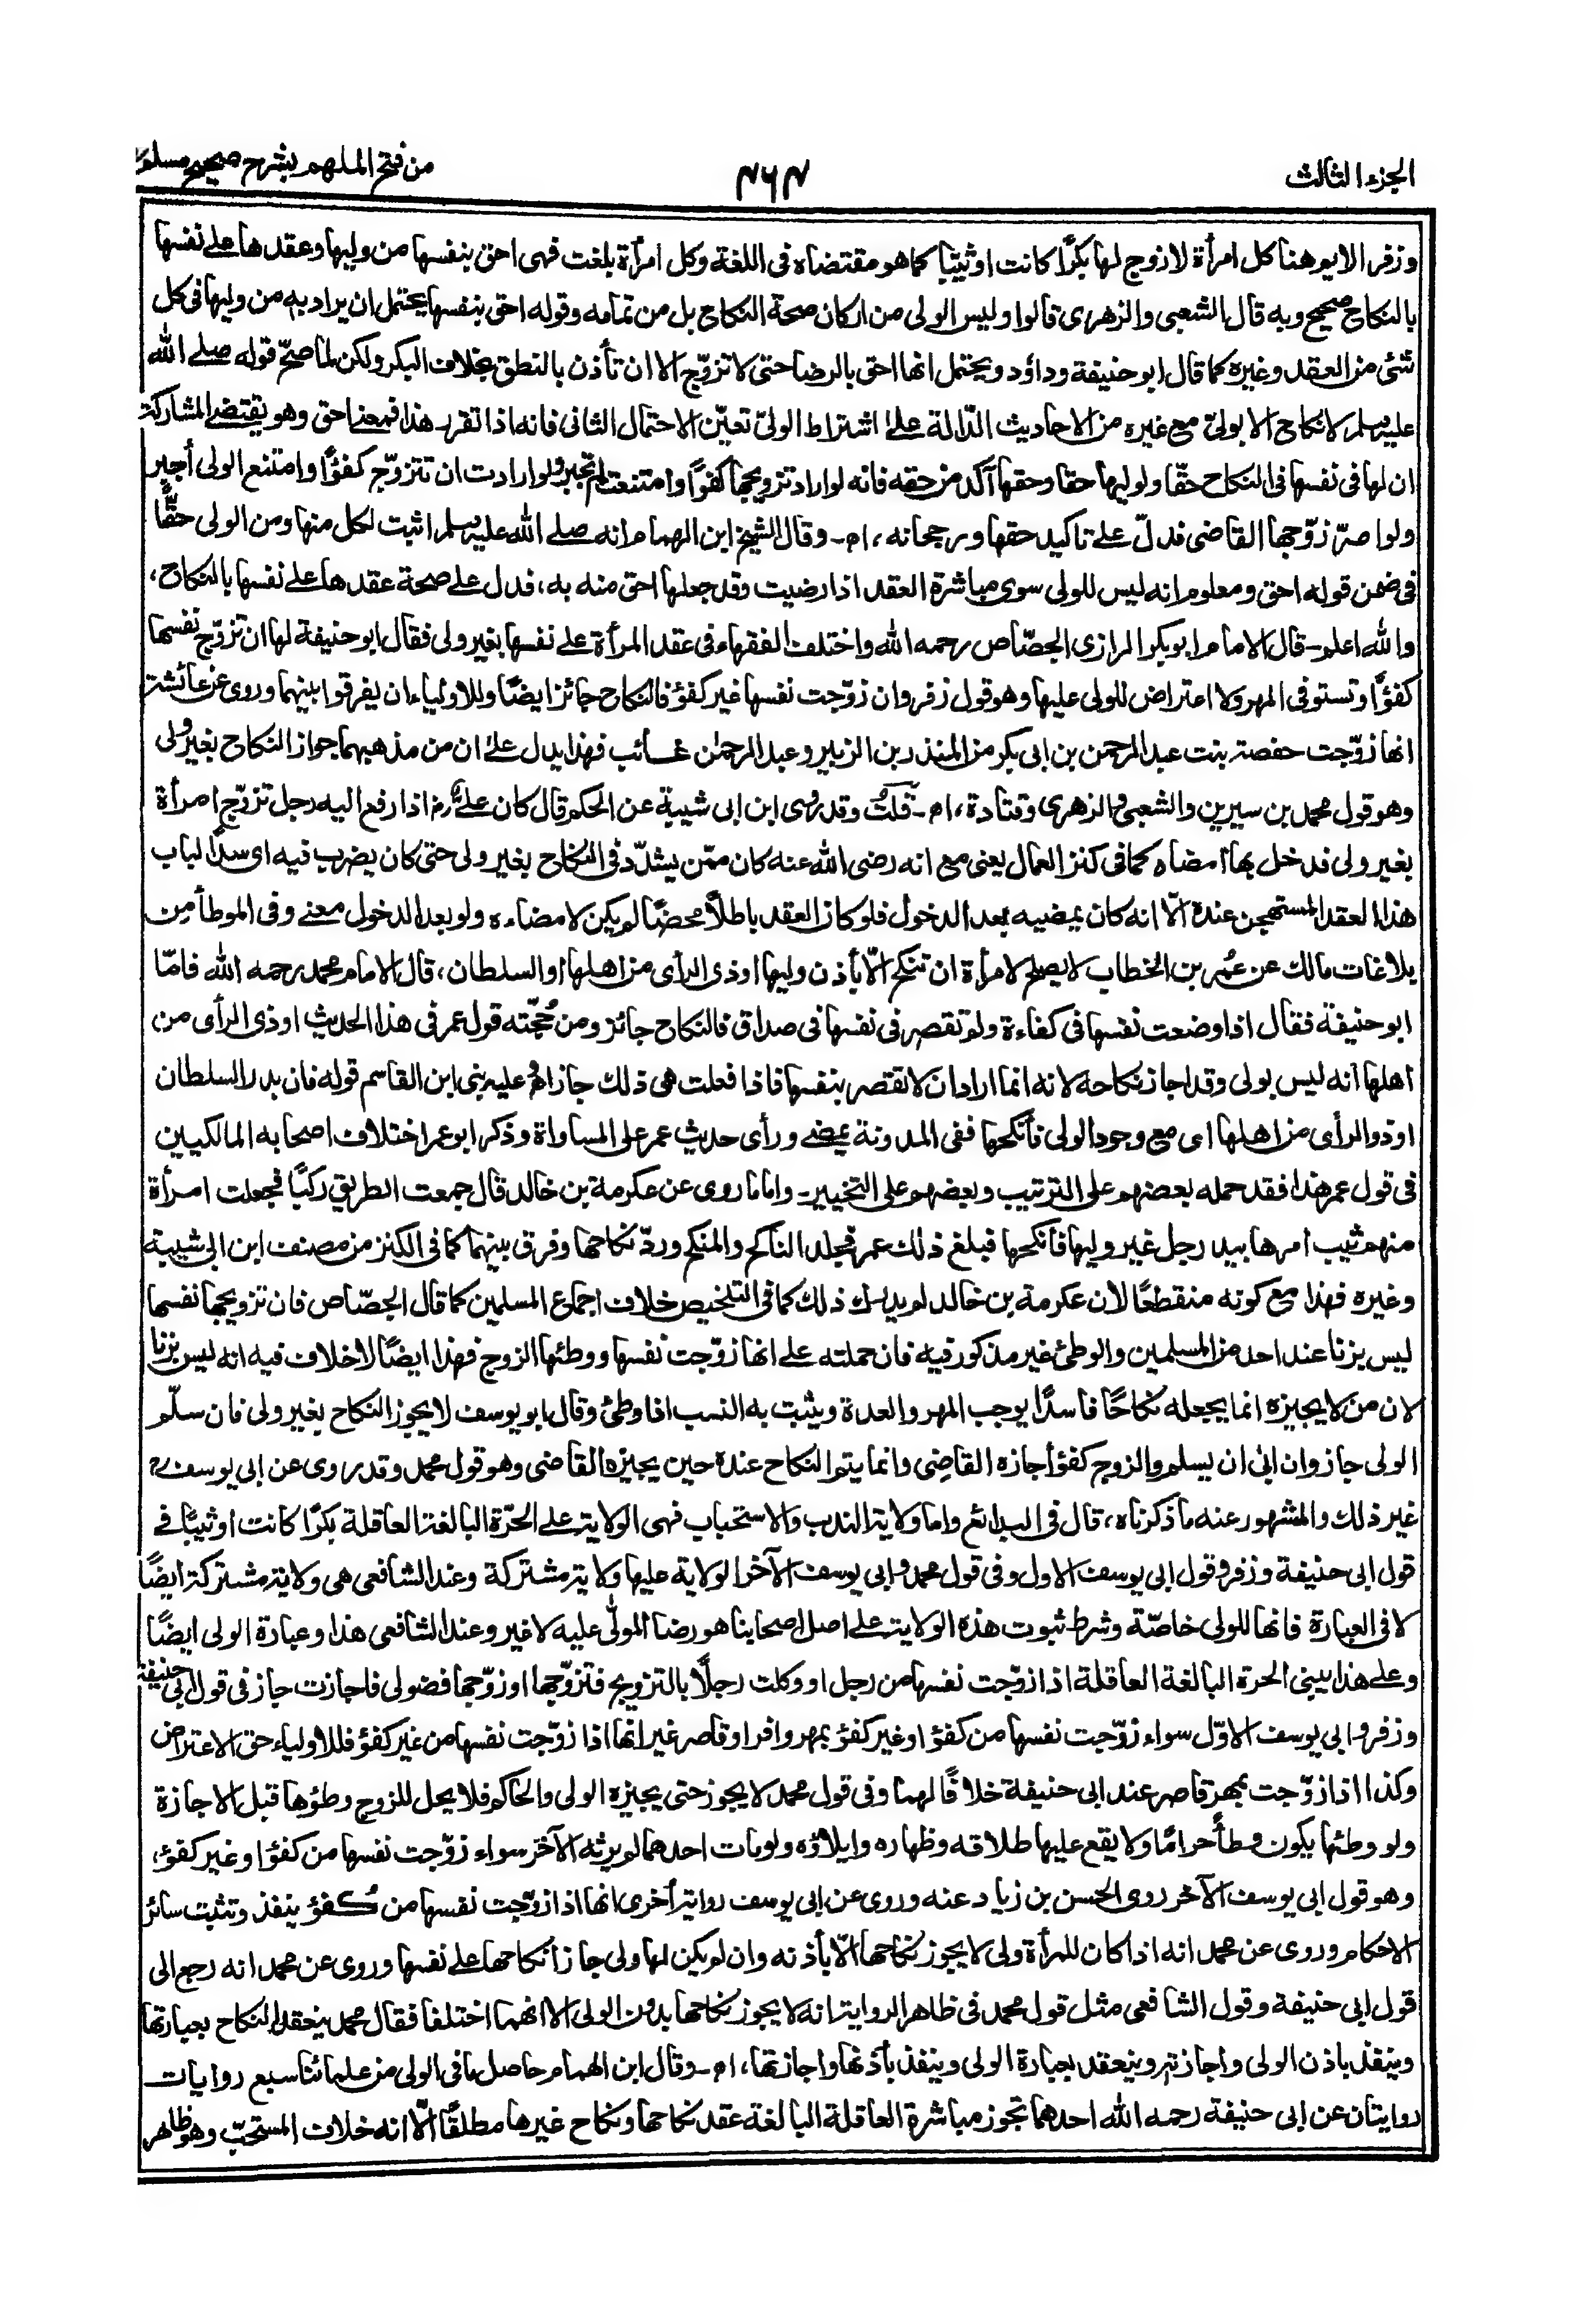 الجزء الثالث
٤٦٣
من فتح الملهم بشرح صحيح مسلم
وزفر الايم هنا كل امرأة لا زوج لها بكرًا كانت او ثيبًا كما هو مقتضاه فى اللغة وكل امرأة بلغت فهى احق بنفسها من وليها وعقدها على نفسها
بالنكاح صحيح وبه قال الشعبى والزهرى قالوا وليس الولى من اركان صحة النكاح بل من تمامه وقوله احق بنفسها يحتمل ان يراد به من وليها فى كل
شئ من العقد وغيره كما قال ابو حنيفة وداؤد ويحتمل انها احق بالرضا حتى لا تزوّج الا ان تأذن بالنطق بخلاف البكر ولكن لما صحّ قوله صلے الله
عليه وسلم لا نكاح الا بولىّ مع غيره من الاحاديث الدّالة علے اشتراط الولىّ تعيّن الاحتمال الثانى فانه اذا تقرر هذا فمعنے احق وهو يقتضے المشاركة
ان لها فى نفسها فى النكاح حقّا ولوليها حقا وحقها آكد من حقه فانه لو اراد تزويجها كفوًا وامتنعت لم تجبر ولو ارادت ان تتزوّج كفؤًا وامتنع الولى أجبر
ولو اصرّ زوّجها القاضى فدلّ علے تاكيد حقها ورجحانه، اھ۔ وقال الشيخ ابن الهمام انه صلے الله عليه وسلم اثبت لكل منها ومن الولى حقًّا
فى ضمن قوله احق ومعلوم انه ليس للولى سوى مباشرة العقد اذا رضيت وقد جعلها احق منه به، فدل علے صحة عقدها علے نفسها بالنكاح،
والله اعلم۔ قال الامام ابو بكر الرازى الجصّاص رحمه الله واختلف الفقهاء فى عقد المرأة علے نفسها بغير ولى فقال ابو حنيفة لها ان تزوّج نفسها
كفؤًا وتستوفى المهر ولا اعتراض للولى عليها وهو قول زفر وان زوّجت نفسها غير كفؤ فالنكاح جائز ايضًا وللاولياء ان يفرقوا بينهما وروى عن عائشة
انها زوّجت حفصة بنت عبد الرحمن بن ابى بكر من المنذر بن الزبير وعبد الرحمٰن غائب فهذا يدل علے ان من مذهبهما جواز النكاح بغير ولى
وهو قول محمد بن سيرين والشعبى والزهرى وقتادة، اھ۔ قلت وقد روى ابن ابى شيبة عن الحكم قال كان علىّ رض اذا رفع اليه رجل تزوّج امرأة
بغير ولى فدخل بها امضاه كما فى كنز العمال يعنى مع انه رضى الله عنه كان ممّن يشدّد فى النكاح بغير ولى حتى كان يضرب فيه اى سدًا لباب
هذا العقد المستهجن عنده الّا انه كان يمضيه بعد الدخول فلو كان العقد باطلًا محضًا لم يكن لامضاءه ولو بعد الدخول معنے وفى الموطأ من
بلاغات مالك عن عُمر بن الخطاب لا يصلح لامرأة ان تنكح الّا بأذن وليها او ذى الرأى من اهلها او السلطان، قال الامام محمد رحمه الله فامّا
ابو حنيفة فقال اذا وضعت نفسها فى كفاءة ولم تقصر فى نفسها فى صداق فالنكاح جائز ومن حُجّته قول عمر فى هذا الحديث او ذى الرأى من
اهلها انه ليس بولى وقد اجاز نكاحه لانه انما اراد ان لا تقصر بنفسها فاذا فعلت هى ذلك جاز اھ وعليه بنى ابن القاسم قوله فان بدر السلطان
او ذو الرأى من اهلها اى مع وجود الولى فأنكحها ففى المدونة يمضے ورأى حديث عمر على المساواة وذكر ابو عمر اختلاف اصحابه المالكيين
فى قول عمر هذا فقد حمله بعضهم على الترتيب وبعضهم على التخيير۔ واما ما روى عن عكرمة بن خالد قال جمعت الطريق ركبًا فجعلت امرأة
منهم ثيب امرها بيد رجل غير وليها فأنكحها فبلغ ذلك عمر فجلد الناكح والمنكح وردّ نكاحها وفرق بينهما كما فى الكنز من مصنف ابن ابى شيبة
وغيره فهذا مع كونه منقطعًا لان عكرمة بن خالد لم يدرك ذلك كما فى التلخيص خلاف اجماع المسلمين كما قال الجصّاص فان تزويجها نفسها
ليس بزنا عند احد من المسلمين والوطئ غير مذكور فيه فان حملته علے انها زوّجت نفسها ووطئها الزوج فهذا ايضًا لا خلاف فيه انه ليس بزنا
لان من لا يجيزه انما يجعله نكاحًا فاسدًا يوجب المهر والعدة ويثبت به النسب اذا وطئ وقال ابو يوسف لا يجوز النكاح بغير ولى فان سلّم
الولى جاز وان ابىٰ ان يسلم والزوج كفؤ أجازه القاضى وانما يتم النكاح عنده حين يجيزه القاضى وهو قول محمد وقد روى عن ابى يوسفؒ
غير ذلك والمشهور عنه ما ذكرناه، قال فى البدائع واما ولاية الندب والاستحباب فهى الولاية علے الحرّة البالغة العاقلة بكرًا كانت او ثيبًا فے
قول ابى حنيفة وزفر وقول ابى يوسف الاول وفى قول محمد وابى يوسف الآخر الولاية عليها ولاية مشتركة وعند الشافعى هى ولاية مشتركة ايضًا
لا فى العبارة فانها للولى خاصّة وشرط ثبوت هذه الولاية علے اصل اصحابنا هو رضا المولّى عليه لا غير وعند الشافعى هذا وعبارة الولى ايضًا
وعلے هذا يبنى الحرة البالغة العاقلة اذا زوّجت نفسها من رجل او وكلت رجلًا بالتزويج فتزوّجها او زوّجها فضولى فاجازت جاز فى قول ابى حنيفة
وزفر وابى يوسف الاوّل سواء زوّجت نفسها من كفؤ او غير كفؤ بمهر وافر او قاصر غير انها اذا زوّجت نفسها من غير كفؤ فللاولياء حق الاعتراض
وكذا اذا زوّجت بمهر قاصر عند ابى حنيفة خلافًا لهما وفى قول محمد لا يجوز حتى يجيزه الولى والحاكم فلا يحل للزوج وطؤها قبل الاجازة
ولو وطئها يكون وطأ حرامًا ولا يقع عليها طلاقه وظهاره وايلاؤه ولو مات احدهما لم يرثه الآخر سواء زوّجت نفسها من كفؤ او غير كفؤ،
وهو قول ابى يوسف الآخر روى الحسن بن زياد عنه وروى عن ابى يوسف رواية أخرى انها اذا زوّجت نفسها من كُفؤ ينفذ وتثبت سائر
الاحكام وروى عن محمد انه اذا كان للمرأة ولى لا يجوز نكاحها الّا بأذنه وان لم يكن لها ولى جاز انكاحها علے نفسها وروى عن محمد انه رجع الى
قول ابى حنيفة وقول الشافعى مثل قول محمد فى ظاهر الرواية انه لا يجوز نكاحها بدون الولى الا انهما اختلفا فقال محمد ينعقد النكاح بعبارتها
وينفذ باذن الولى واجازته وينعقد بعبارة الولى وينفذ بأذنها واجازتها، اھ۔ وقال ابن الهمام حاصل ما فى الولى من علمائنا سبع روايات
روايتان عن ابى حنيفة رحمه الله احدهما تجوز مباشرة العاقلة البالغة عقد نكاحها ونكاح غيرها مطلقًا الّا انه خلاف المستحبّ وهو ظاهر